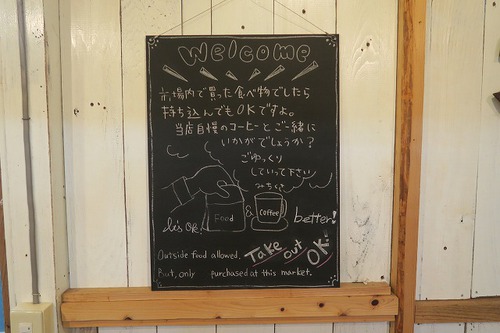 Welcome
市場内で買った食べ物でしたら
持ち込んでもOKですよ。
当店自慢のコーヒーとご一緒に
いかがでしょうか?
ごゆっくり
していって下さい
みちくさ
It's OK.
Food
&
Coffee
better!
Outside food allowed.
But, only purchased at this market.
Take out OK!